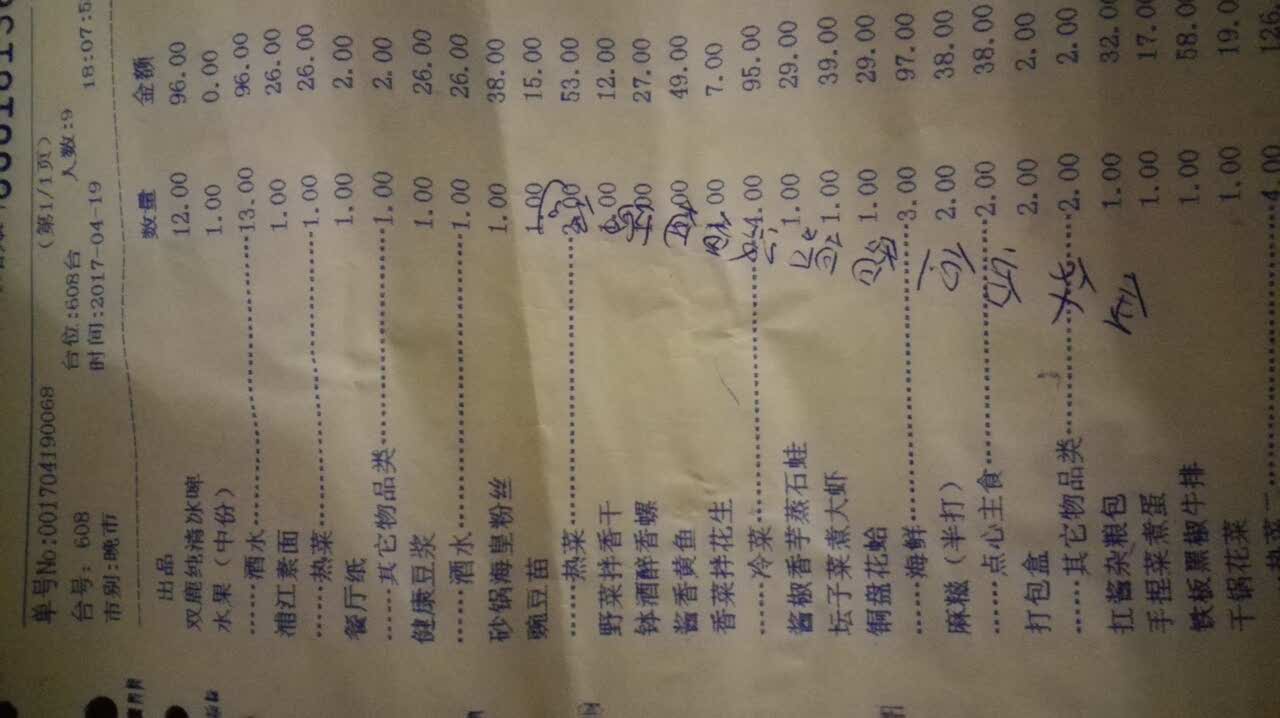 单号No:001704190068 (第1/1页)
台号: 608 台位:608台 人数:9
市别:晚市 时间:2017-04-19 18:07:5
出品 数量 金额
双鹿纯清冰啤 12.00 96.00
水果 (中份) 1.00 0.00
······酒水······13.00 96.00
浦江素面 1.00 26.00
······热菜······1.00 26.00
餐厅纸 1.00 2.00
······其它物品类······1.00 2.00
健康豆浆 1.00 26.00
······酒水······1.00 26.00
砂锅海皇粉丝 1.00 38.00
豌豆苗 1.00 15.00
······热菜······2.00 53.00
野菜拌香干 1.00 12.00
钵酒醉香螺 1.00 27.00
酱香黄鱼 1.00 49.00
香菜拌花生 1.00 7.00
······冷菜······4.00 95.00
酱椒香芋蒸石蛙 1.00 29.00
坛子菜煮大虾 1.00 39.00
铜盘花蛤 1.00 29.00
······海鲜······3.00 97.00
麻糍 (半打) 2.00 38.00
······点心主食······2.00 38.00
打包盒 2.00 2.00
······其它物品类······2.00 2.00
扛酱杂粮包 1.00 32.00
手捏菜煮蛋 1.00 17.00
铁板黑椒牛排 1.00 58.00
干锅花菜 1.00 19.0
······热菜······4.00 126.